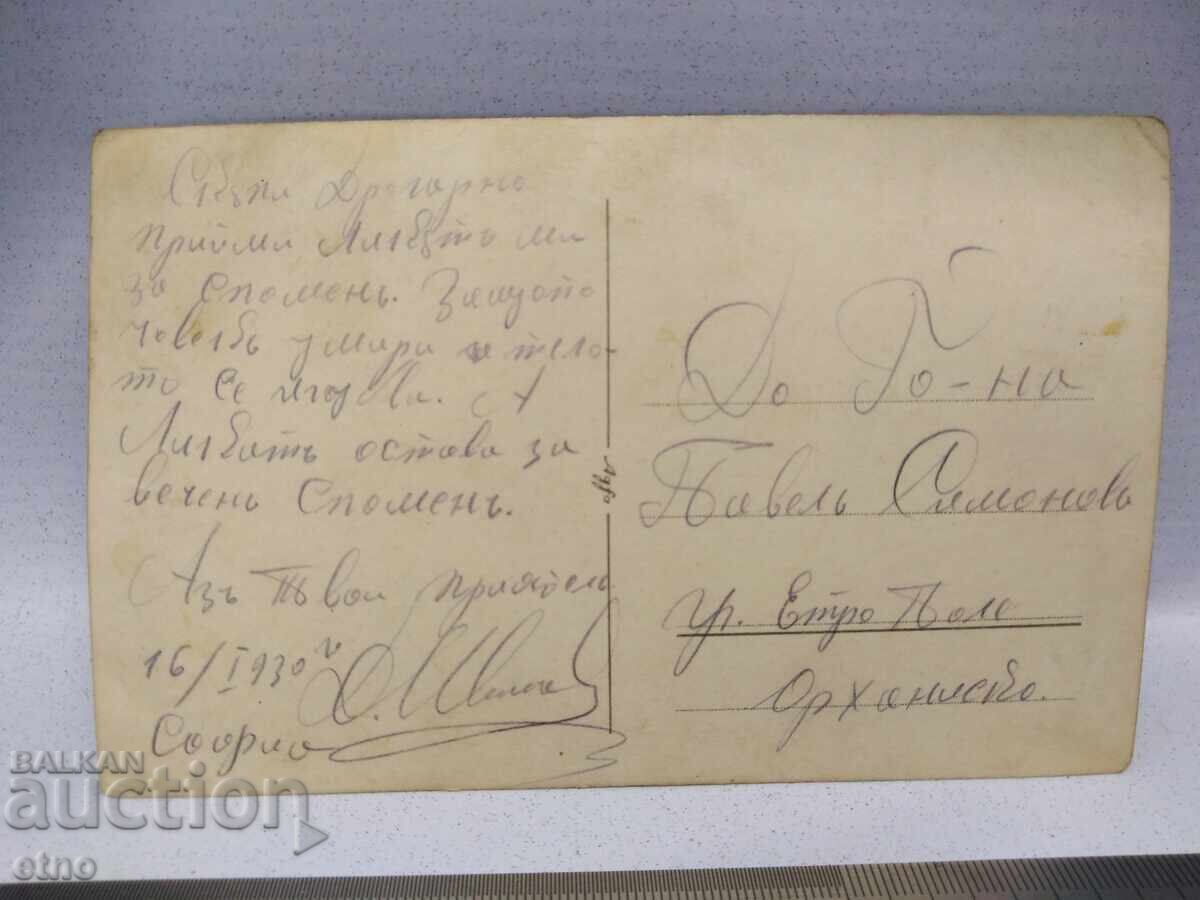 Скъпи Другарю
приеми Ликътъ ми
за споменъ. Защото
човекъ умира и тело-
то се изгубва. А
Ликътъ остава за
вечень споменъ.
Азъ Твой приятель
16/I 930 г.
София
До Г-на
Павелъ Симоновъ
гр. Етро Поле
Орханийско.
Agfa
BALKAN
auction
etno